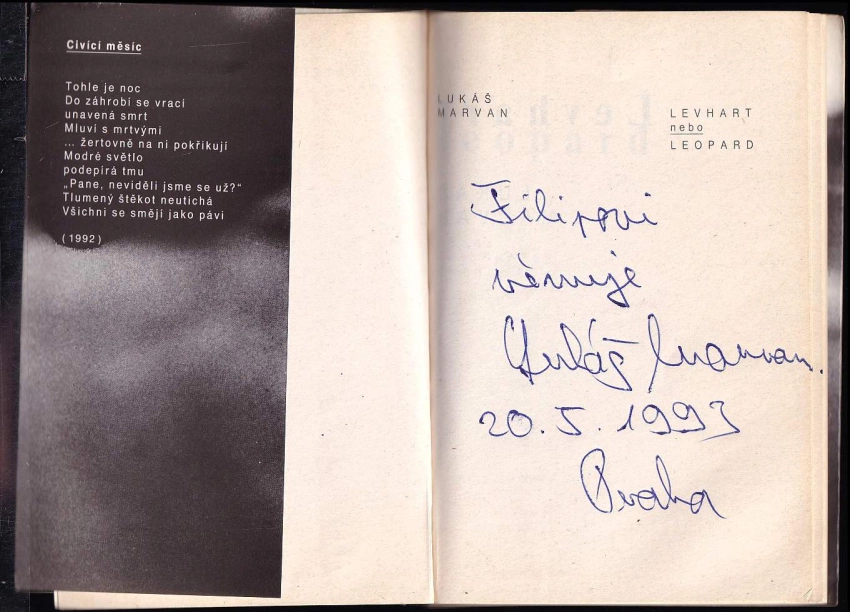 Civící měsíc
Tohle je noc
Do záhrobí se vrací
unavená smrt
Mluví s mrtvými
... žertovně na ni pokřikují
Modré světlo
podepírá tmu
„Pane, neviděli jsme se už?“
Tlumený štěkot neutichá
Všichni se smějí jako pávi
(1992)
LUKÁŠ
MARVAN
LEVHART
nebo
LEOPARD
Filipovi
věnuje
Lukáš Marvan.
20.5.1993
Praha